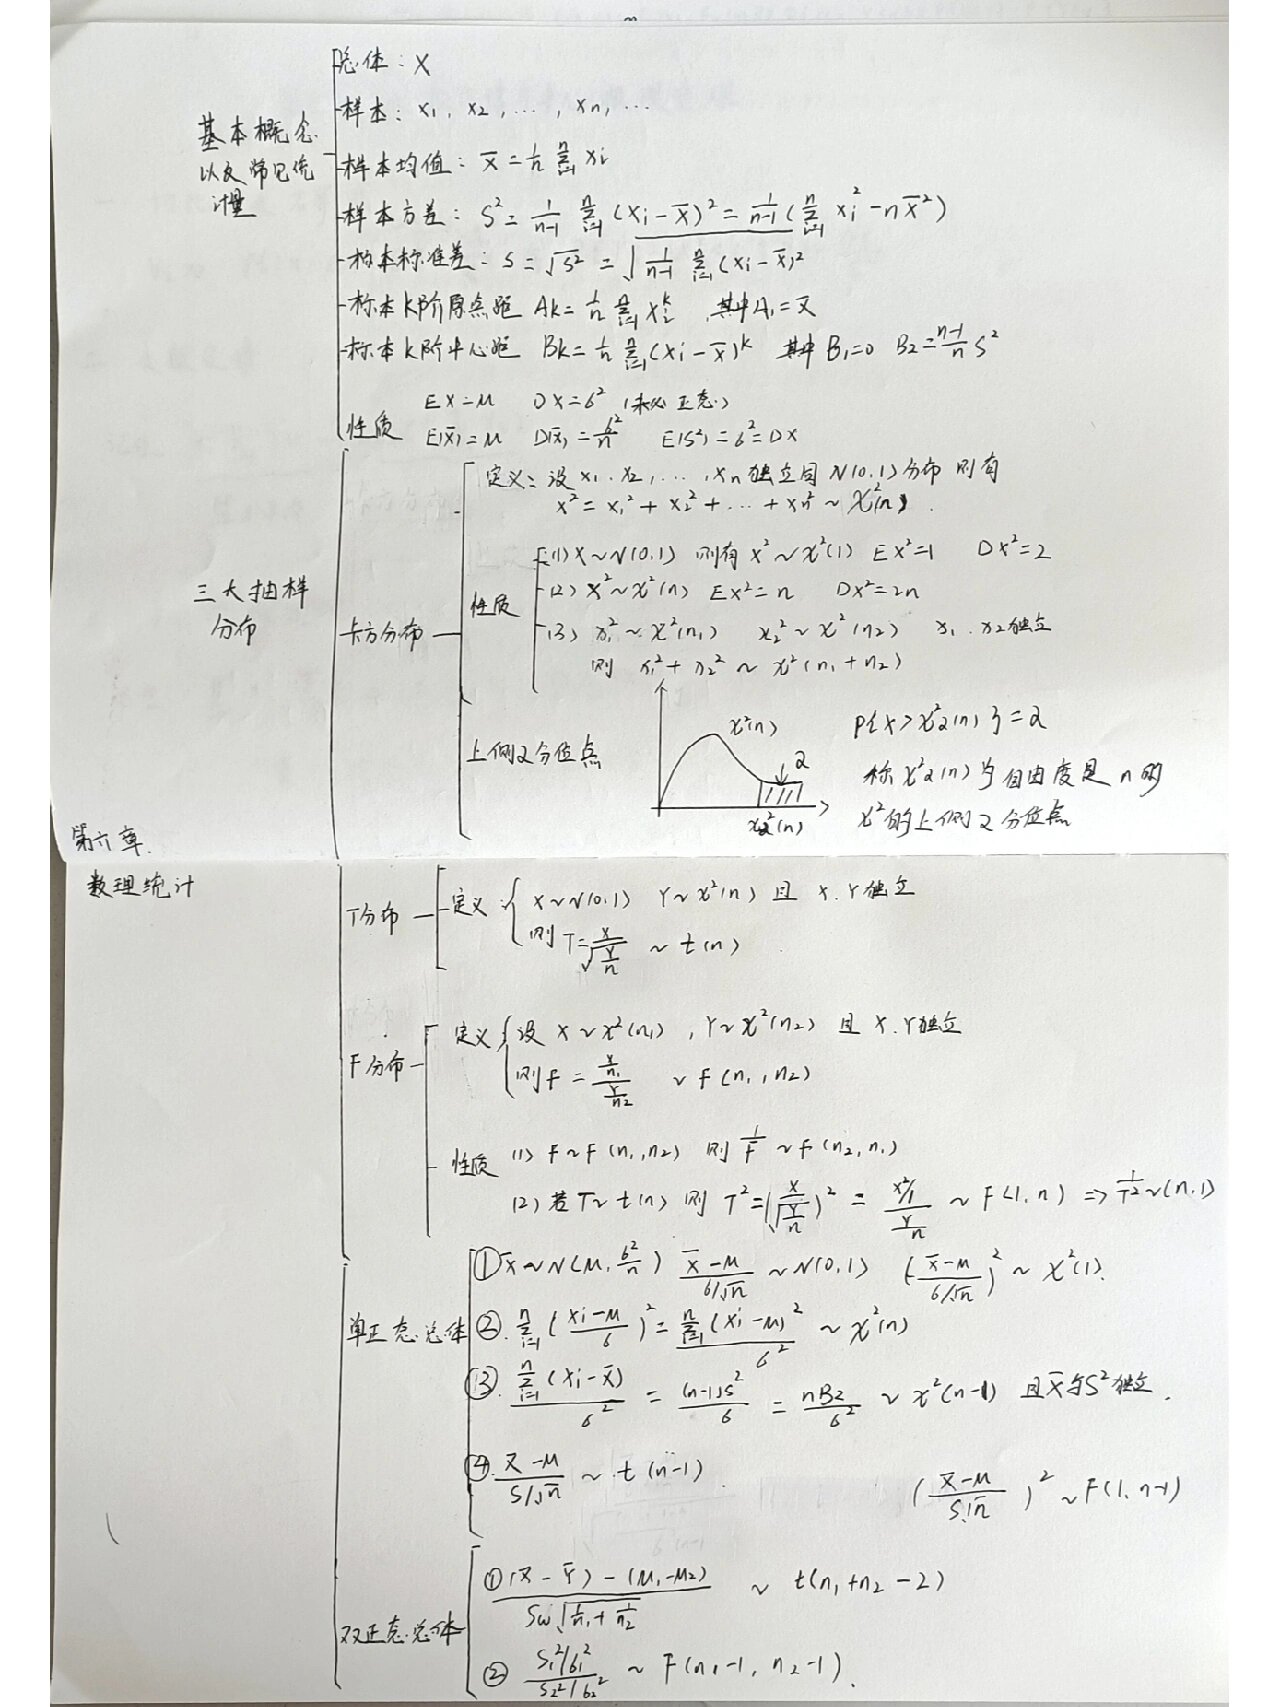 总体：X
样本：x₁, x₂, …, xn, …
基本概念
以及常见统
计量
样本均值：x̄ = 1/n Σᵢ₌₁ⁿ xi
样本方差：S² = 1/(n-1) Σᵢ₌₁ⁿ (xi - x̄)² = 1/(n-1) (Σᵢ₌₁ⁿ xi² - n x̄²)
标本标准差：S = √S² = √(1/(n-1) Σᵢ₌₁ⁿ (xi - x̄)²)
标本k阶原点距 Ak = 1/n Σᵢ₌₁ⁿ xiᵏ ，其中A₁ = x̄
标本k阶中心距 Bk = 1/n Σᵢ₌₁ⁿ (xi - x̄)ᵏ 其中B₁=0 B₂ = (n-1)/n S²
性质
EX = μ DX = σ² (未必正态)
E(x̄) = μ D(x̄) = σ²/n E(S²) = σ² = DX
三大抽样
分布
卡方分布
定义：设 x₁, x₂, …, xn 独立同 N(0,1) 分布 则有
x² = x₁² + x₂² + … + xn² ~ χ²(n).
性质
(1) X~N(0,1) 则有 x² ~ χ²(1) Ex²=1 Dx²=2
(2) x² ~ χ²(n) Ex²=n Dx²=2n
(3) x₁² ~ χ²(n₁) x₂² ~ χ²(n₂) x₁, x₂独立
则 x₁² + x₂² ~ χ²(n₁+n₂)
上侧α分位点
χ²(n)
α
χα²(n)
P{X > χ²α(n)} = α
称 χ²α(n) 为自由度是 n 的
χ²的上侧α分位点
第六章.
数理统计
T分布
定义：X~N(0,1) Y~χ²(n) 且 X, Y独立
则 T = X/√(Y/n) ~ t(n)
F分布
定义 设 X~χ²(n₁), Y~χ²(n₂) 且 X, Y独立
则 F = (X/n₁)/(Y/n₂) ~ F(n₁, n₂)
性质 (1) F~F(n₁,n₂) 则 1/F ~ F(n₂,n₁)
(2) 若 T~t(n) 则 T² = (X/√(Y/n))² = (X²/1)/(Y/n) ~ F(1,n) ⇒ 1/T² ~ (n,1)
单正态总体
① x̄~N(μ, σ²/n) (x̄-μ)/(σ/√n) ~ N(0,1) ((x̄-μ)/(σ/√n))² ~ χ²(1).
②. Σᵢ₌₁ⁿ ((xi-μ)/σ)² = Σᵢ₌₁ⁿ (xi-μ)²/σ² ~ χ²(n)
③. Σᵢ₌₁ⁿ (xi-x̄)/σ² = (n-1)S²/σ = nB₂/σ² ~ χ²(n-1) 且x̄与S²独立.
④. (x̄-μ)/(S/√n) ~ t(n-1) ((x̄-μ)/(S/√n))² ~ F(1,n-1)
双正态总体
① ((x̄-ȳ)-(μ₁-μ₂))/(Sω√(1/n₁+1/n₂)) ~ t(n₁+n₂-2)
② (S₁²/σ₁²)/(S₂²/σ₂²) ~ F(n₁-1, n₂-1).